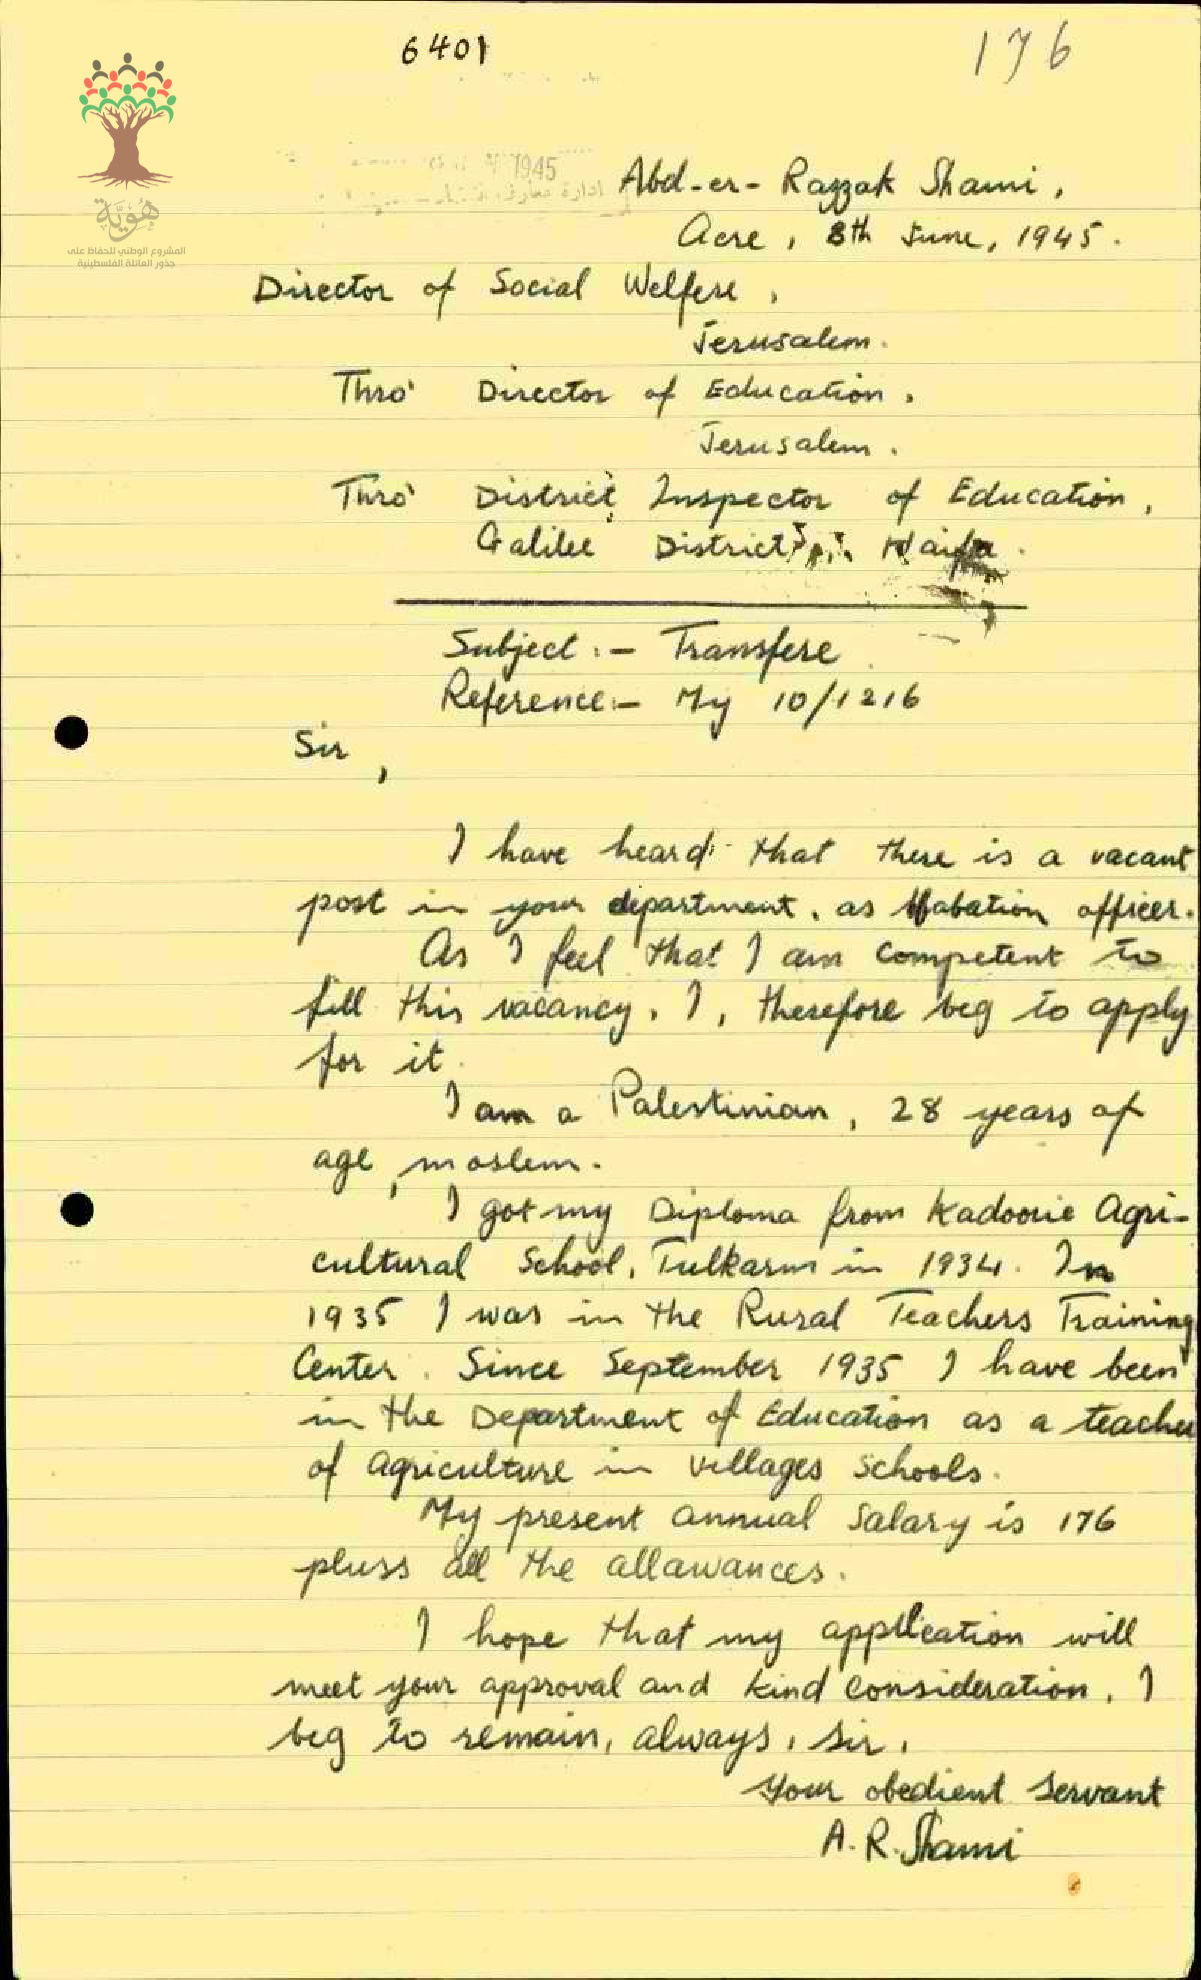 6401
176
هُوِيَّة
المشروع الوطني للحفاظ على
جذور العائلة الفلسطينية
1945
ادارة معارف
Abd-er-Razzak Shami,
Acre, 8th June, 1945.
Director of Social Welfere,
Jerusalem.
Thro' Director of Education,
Jerusalem.
Thro' District Inspector of Education,
Galilee District, Haifa.
Subject:- Transfere
Reference:- My 10/1216
Sir,
I have heard that there is a vacant
post in your department, as officer.
As I feel that I am competent to
fill this vacancy, I, therefore beg to apply
for it.
I am a Palestinian, 28 years of
age, moslem.
I got my Diploma from Kadoorie Agri-
cultural School, Tulkarm in 1934. In
1935 I was in the Rural Teachers Training
Center. Since September 1935 I have been
in the Department of Education as a teacher
of agriculture in villages schools.
My present annual salary is 176
pluss all the allawances.
I hope that my application will
meet your approval and kind consideration, I
beg to remain, always, sir,
Your obedient servant
A. R. Shami